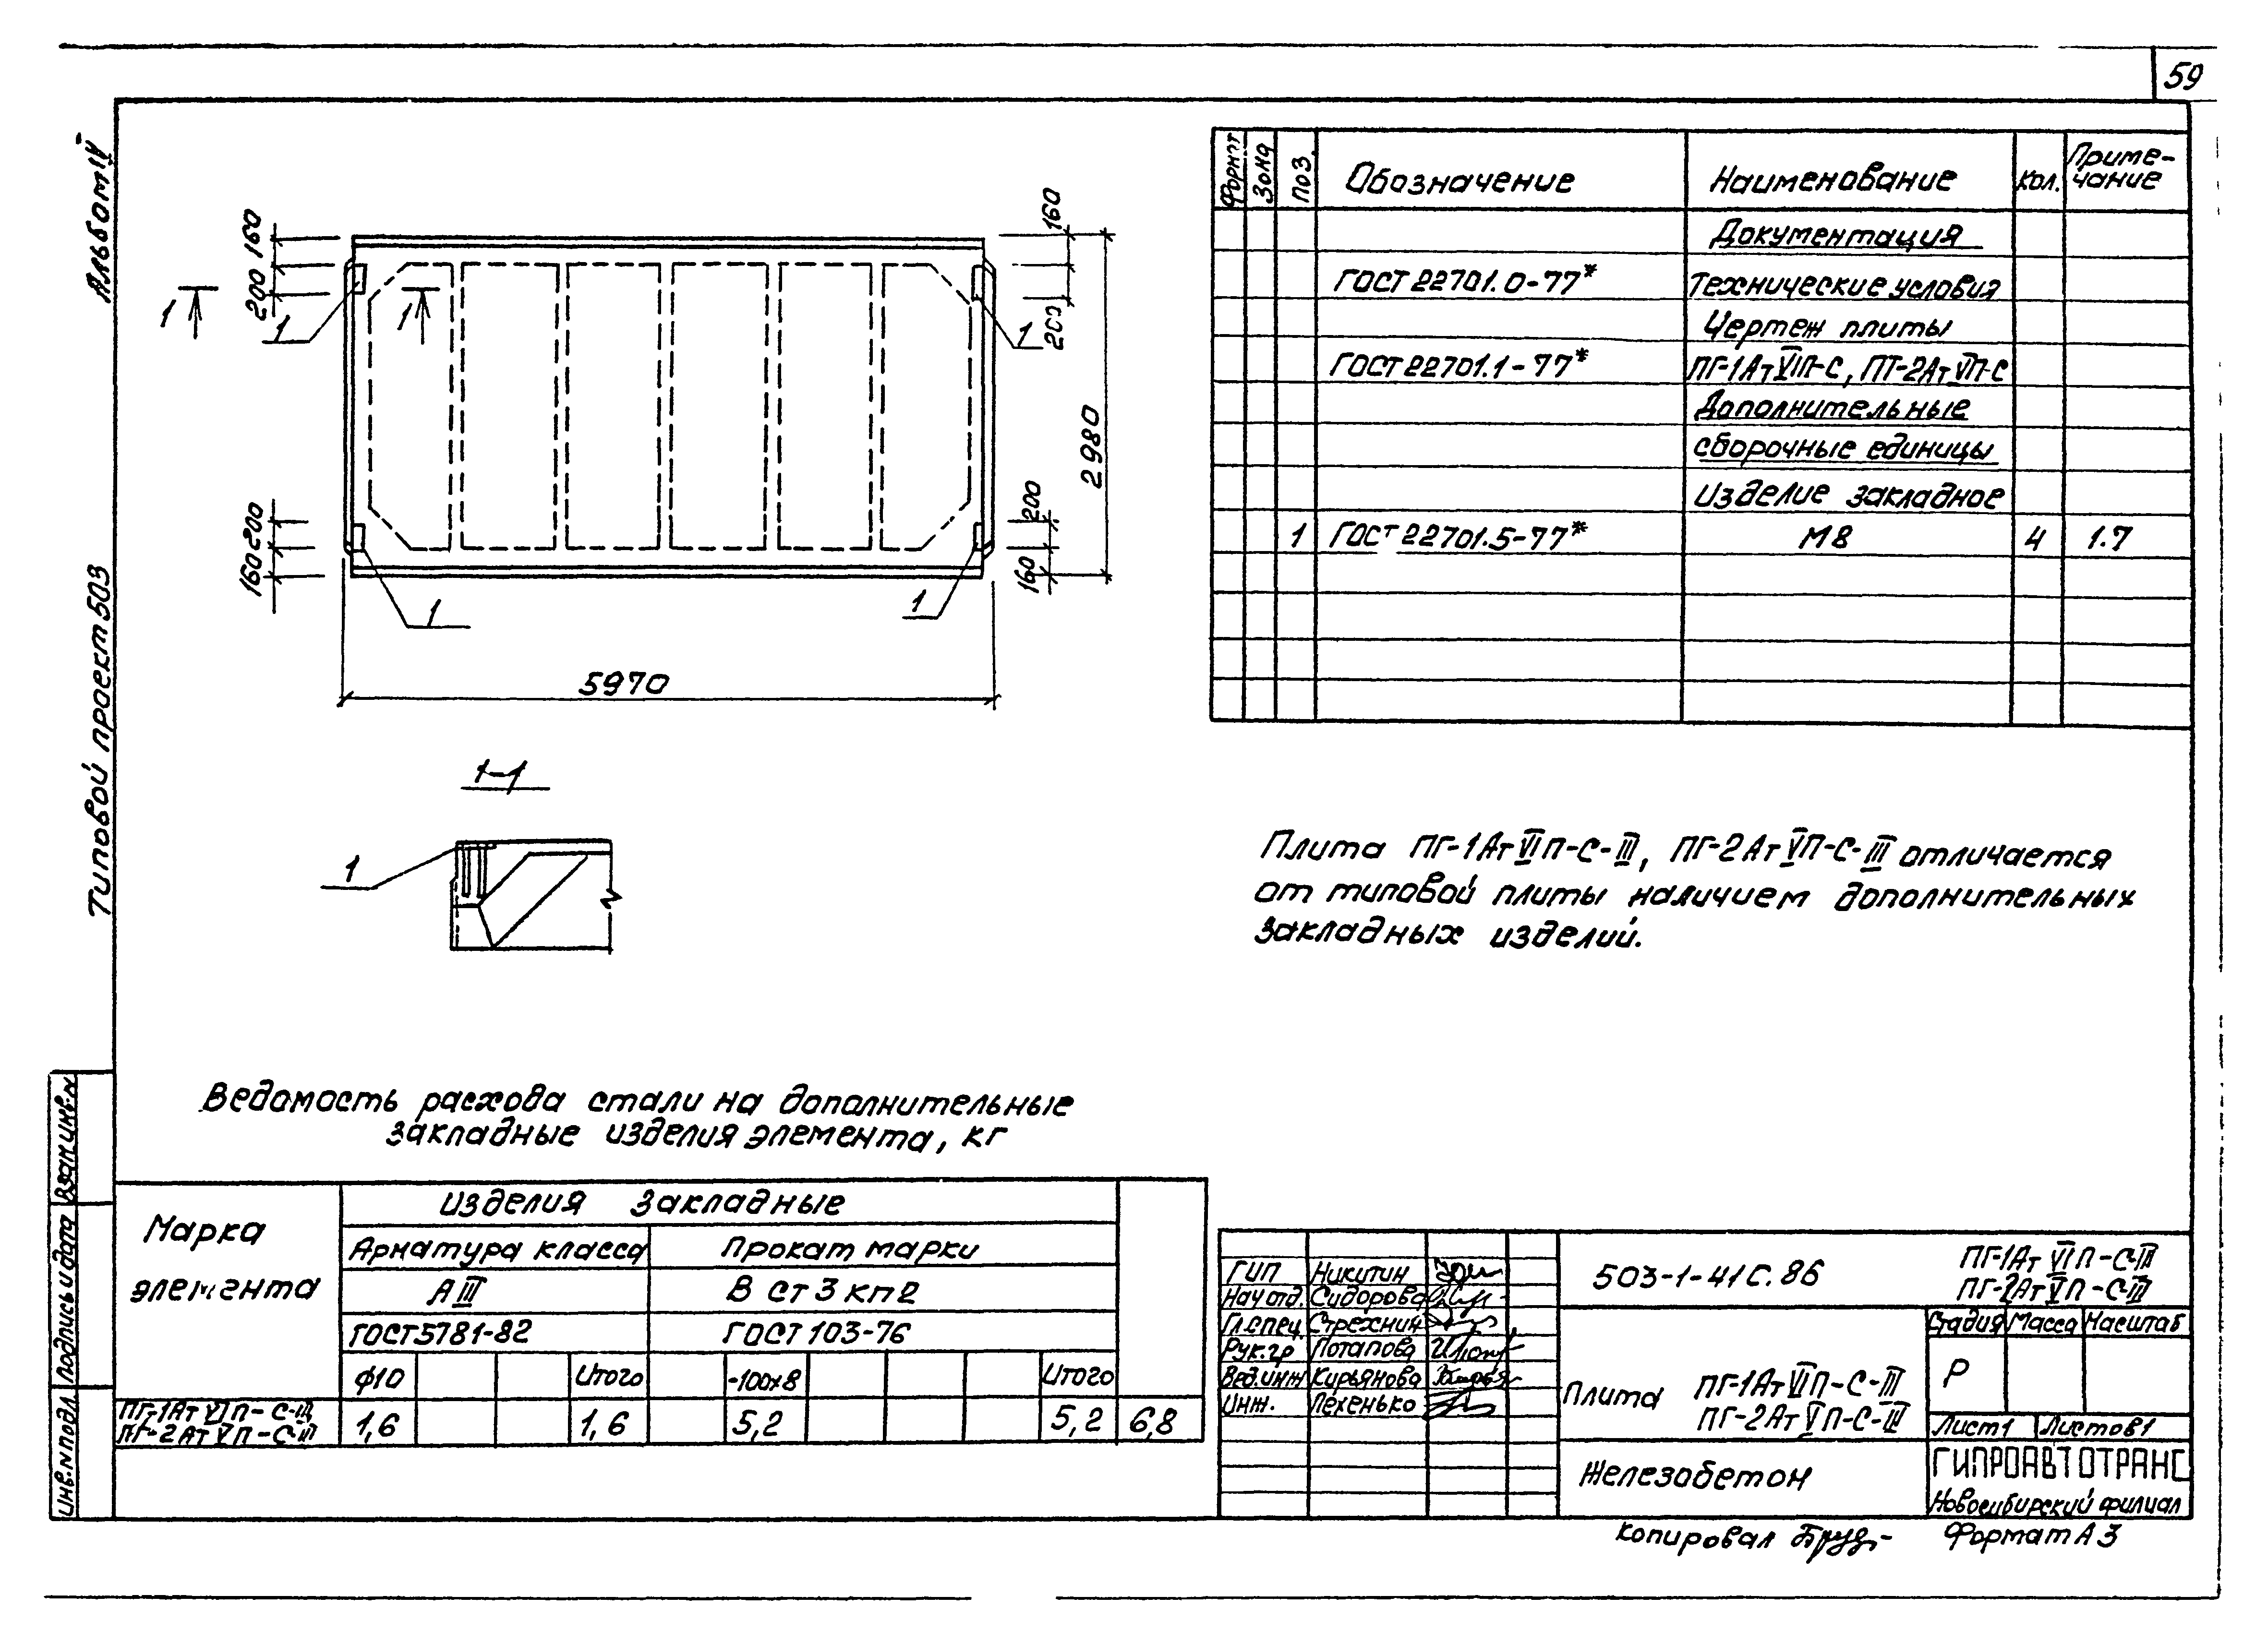 59
Альбом IV
Типовой проект 503
160
200
1
1
1
1
160
200
2980
200
160
200
160
1
1
5970
1-1
1
Формат Зона Поз. Обозначение Наименование Кол. Приме-
чание
Документация
ГОСТ 22701.0-77* Технические условия
Чертеж плиты
ГОСТ 22701.1-77* ПГ-1АтVIП-С, ПТ-2АтVП-С
Дополнительные
сборочные единицы
Изделие закладное
1 ГОСТ 22701.5-77* М8 4 1.7
Плита ПГ-1АтVIП-С-III, ПГ-2АтVП-С-III отличается
от типовой плиты наличием дополнительных
закладных изделий.
Ведомость расхода стали на дополнительные
закладные изделия элемента, кг
Марка
элемента
Изделия закладные
Арматура класса Прокат марки
АIII В ст 3 кп2
ГОСТ 5781-82 ГОСТ 103-76
ф10 Итого -100х8 Итого
ПГ-1АтVIП-С-III
ПГ-2АтVП-С-III
1,6 1,6 5,2 5,2 6,8
ГИП Никитин
Нач отд. Сидорова
Гл.спец. Стрехнин
Рук.гр Потапова
Вед.инж Кирьянова
Инж. Лехенько
503-1-41с.86
ПГ-1АтVIП-С-III
ПГ-2АтVП-С-III
Плита
ПГ-1АтVIП-С-III
ПГ-2АтVП-С-III
Стадия Масса Масштаб
Р
Лист 1 Листов 1
Железобетон
ГИПРОАВТОТРАНС
Новосибирский филиал
Инв.№подл Подпись и дата Взам.инв.№
Копировал
Формат А3